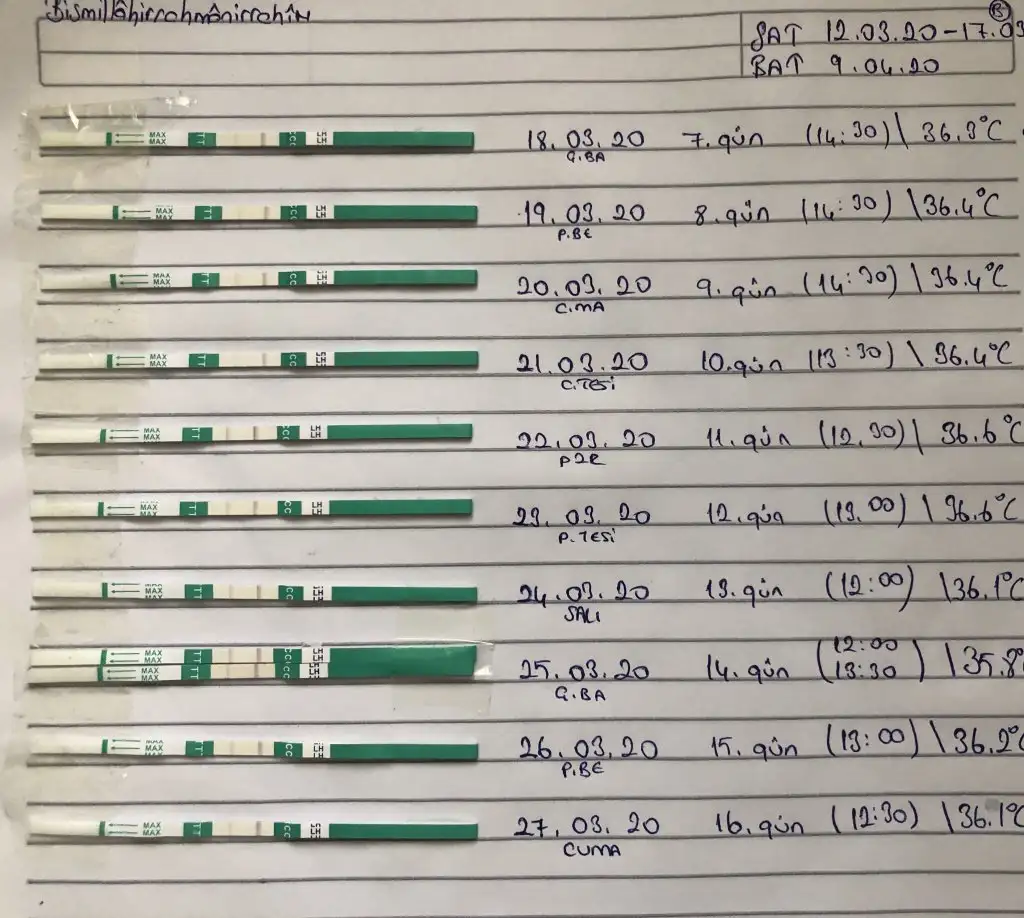 Bismillâhirrahmânirrahîm
B
SAT 12.03.20-17.03
BAT 9.04.20
MAX MAX TT CC LH LH 18.03.20 7.gün (14:30) \ 36.3°C
Ç.BA
MAX MAX TT CC LH LH 19.03.20 8.gün (14:30) \ 36.4°C
P.BE
MAX MAX TT CC LH LH 20.03.20 9.gün (14:30) \ 36.4°C
C.MA
MAX MAX TT CC LH LH 21.03.20 10.gün (13:30) \ 36.4°C
C.TESİ
MAX MAX TT CC LH LH 22.03.20 11.gün (12.30) \ 36.6°C
PZR
MAX MAX TT CC LH LH 23.03.20 12.gün (13.00) \ 36.6°C
P.TESİ
MAX MAX TT CC LH LH 24.03.20 13.gün (12:00) \ 36.1°C
SALI
MAX MAX TT CC LH LH 12:00
MAX MAX TT CC LH LH 25.03.20 14.gün (13:30) \ 35.8°
Ç.BA
MAX MAX TT CC LH LH 26.03.20 15.gün (13:00) \ 36.2°C
P.BE
MAX MAX TT CC LH LH 27.03.20 16.gün (12:30) \ 36.1°C
CUMA